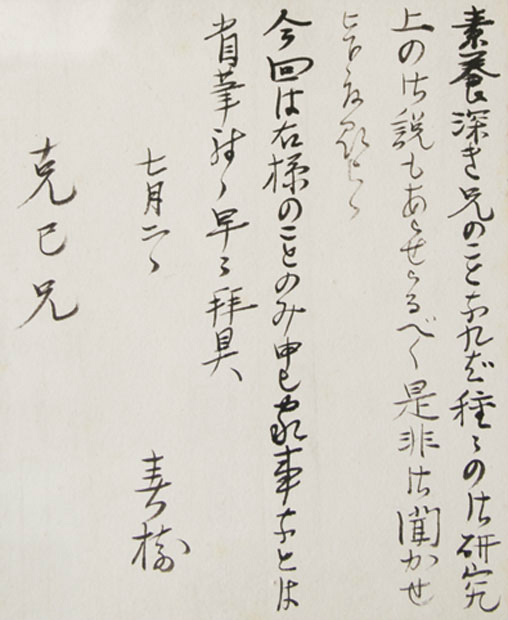 素養深き兄のことなれば種々の御研究
上の御説もあらせらるべく是非御聞かせ
下度願上候
今回は右様のことのみ申し家事などは
省筆致候 早々拝具
七月二日
春樹
克己兄